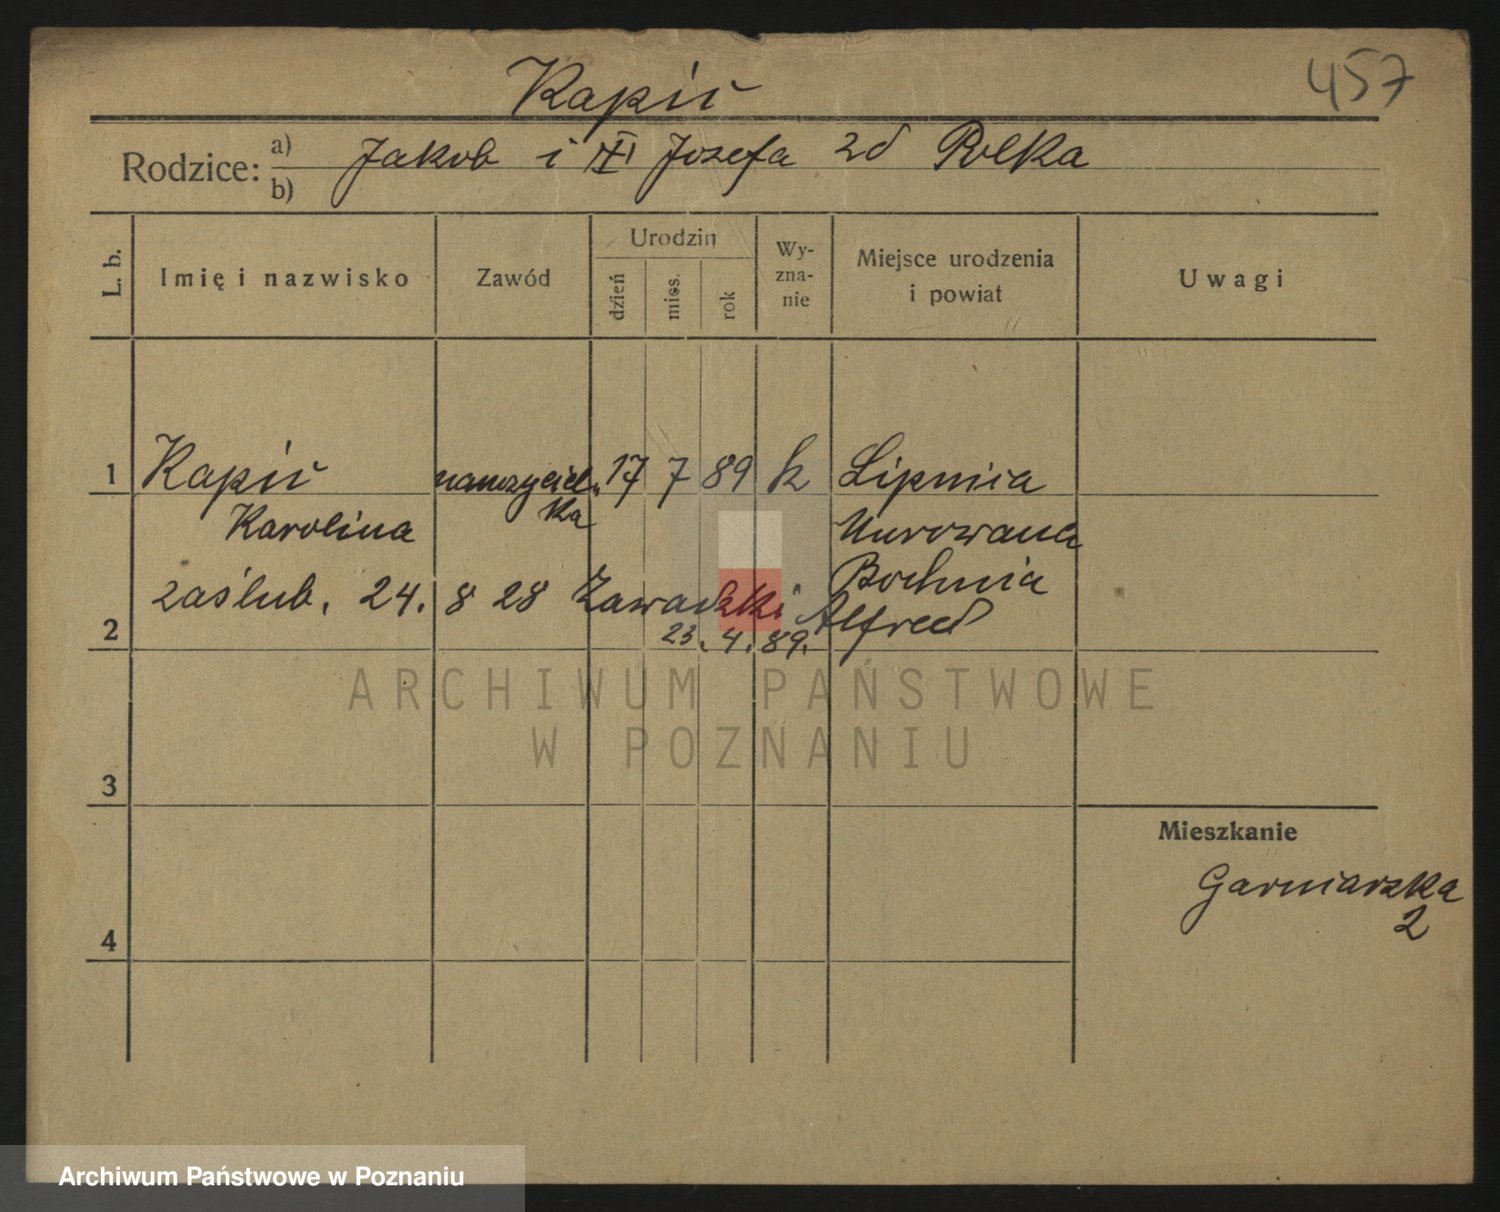 457
Kapić
Rodzice: a) Jakob i Józefa zd Polka
b)
L. b. Imię i nazwisko Zawód Urodzin dzień mies. rok Wy-zna-nie Miejsce urodzenia i powiat Uwagi
1 Kapić nauczyciel- 17 7 89 k Lipnica
Karolina ka Murowana
Bochnia
zaślub. 24. 8 28 Zawadzki Alfred
2 23. 4. 89.
ARCHIWUM PAŃSTWOWE
W POZNANIU
3
Mieszkanie
Garniarska
2
4
Archiwum Państwowe w Poznaniu